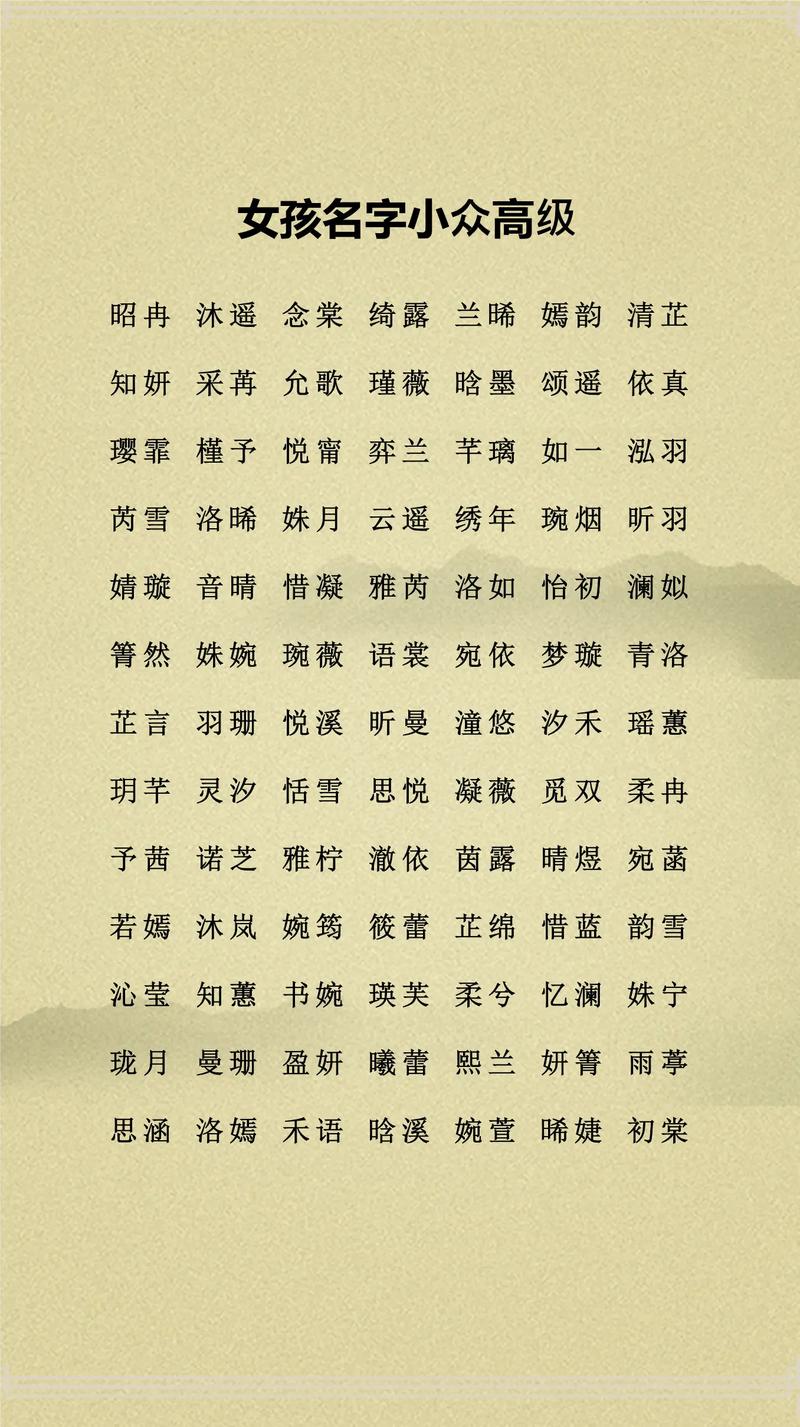 女孩名字小众高级
昭冉 沐遥 念棠 绮露 兰晞 嫣韵 清芷
知妍 采苒 允歌 瑾薇 晗墨 颂遥 依真
璎霏 槿予 悦甯 弈兰 芊璃 如一 泓羽
芮雪 洛晞 姝月 云遥 绣年 琬烟 昕羽
婧璇 音晴 惜凝 雅芮 洛如 怡初 澜姒
箐然 姝婉 琬薇 语裳 宛依 梦璇 青洛
芷言 羽珊 悦溪 昕曼 潼悠 汐禾 瑶蕙
玥芊 灵汐 恬雪 思悦 凝薇 觅双 柔冉
予茜 诺芝 雅柠 澈依 茵露 晴煜 宛菡
若嫣 沐岚 婉筠 筱蕾 芷绵 惜蓝 韵雪
沁莹 知蕙 书婉 瑛芙 柔兮 忆澜 姝宁
珑月 曼珊 盈妍 曦蕾 熙兰 妍箐 雨葶
思涵 洛嫣 禾语 晗溪 婉萱 晞婕 初棠